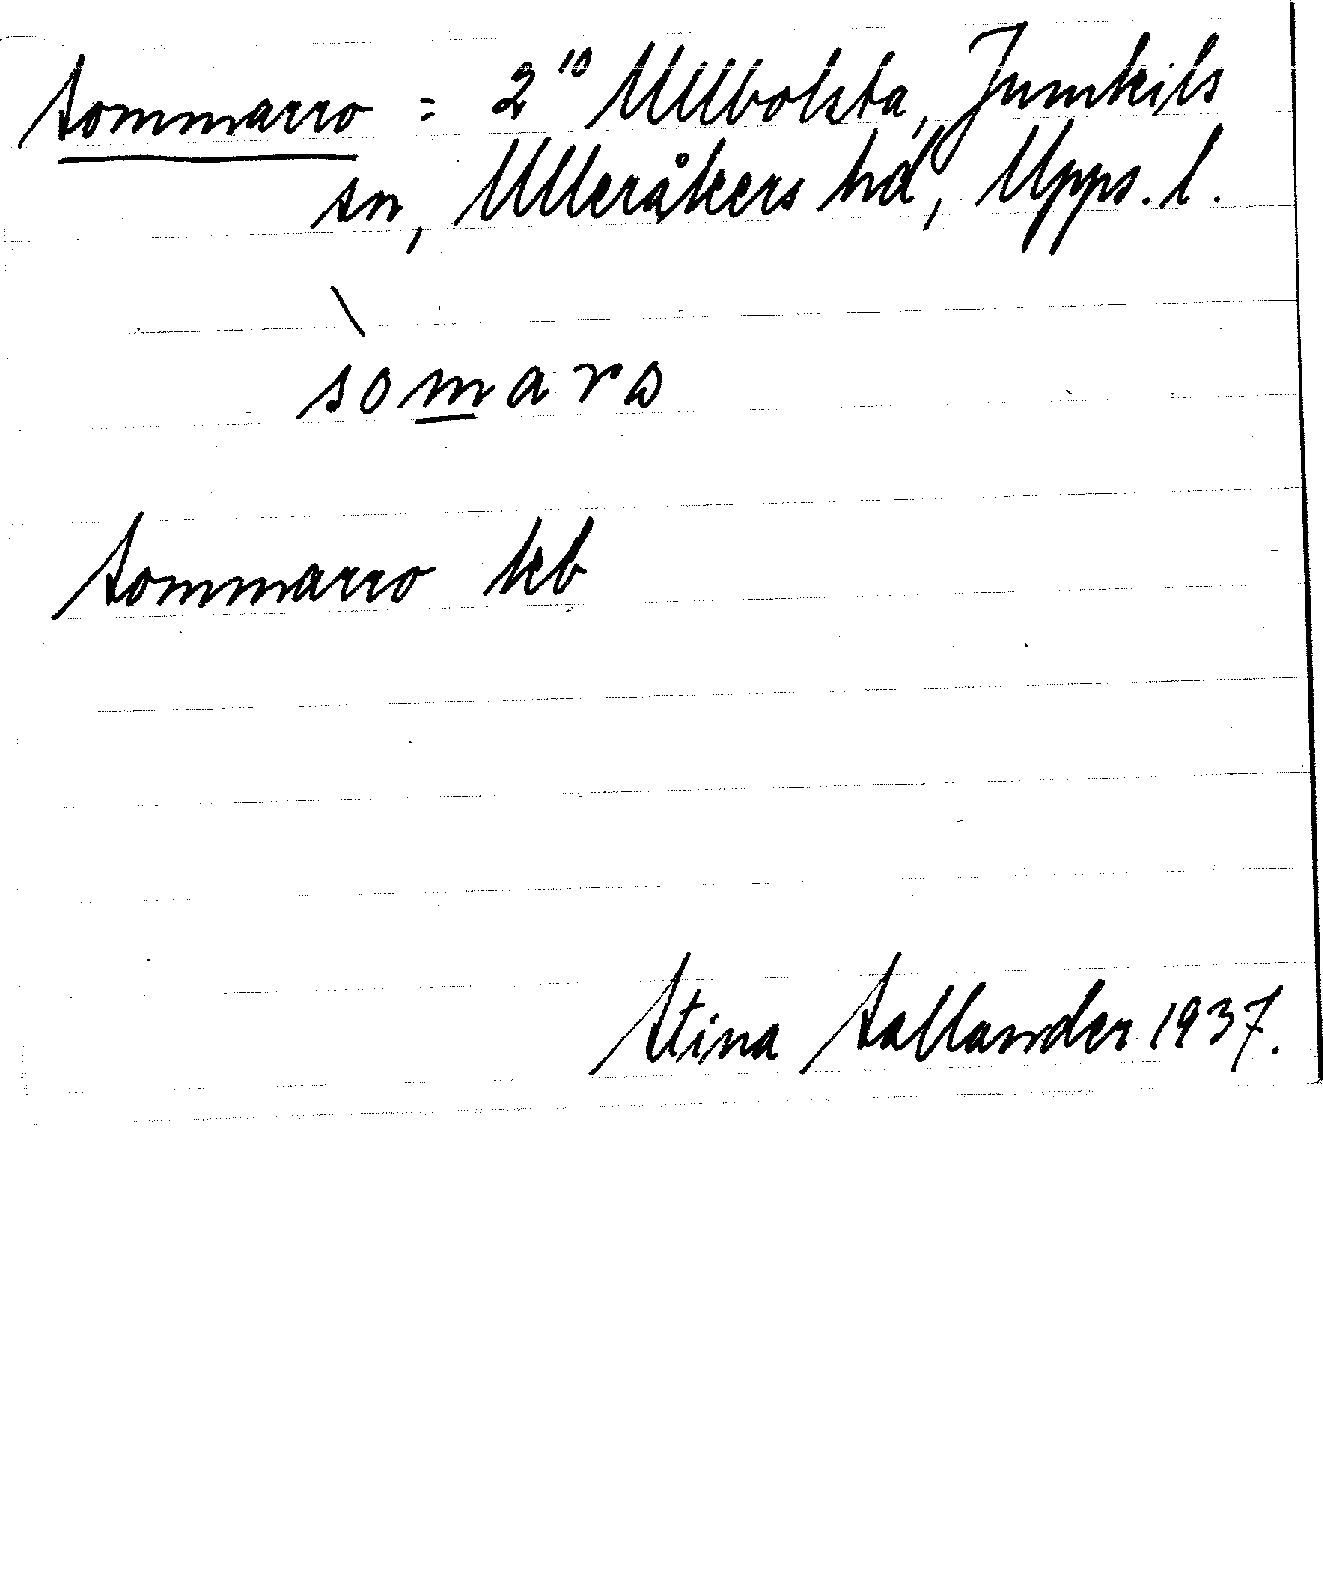 Sommarro = 2¹⁰ Ullbolsta, Jumkils
sn, Ulleråkers hd, Upps. l.
sòmaro
Sommarro kb
Stina Sallander 1937.